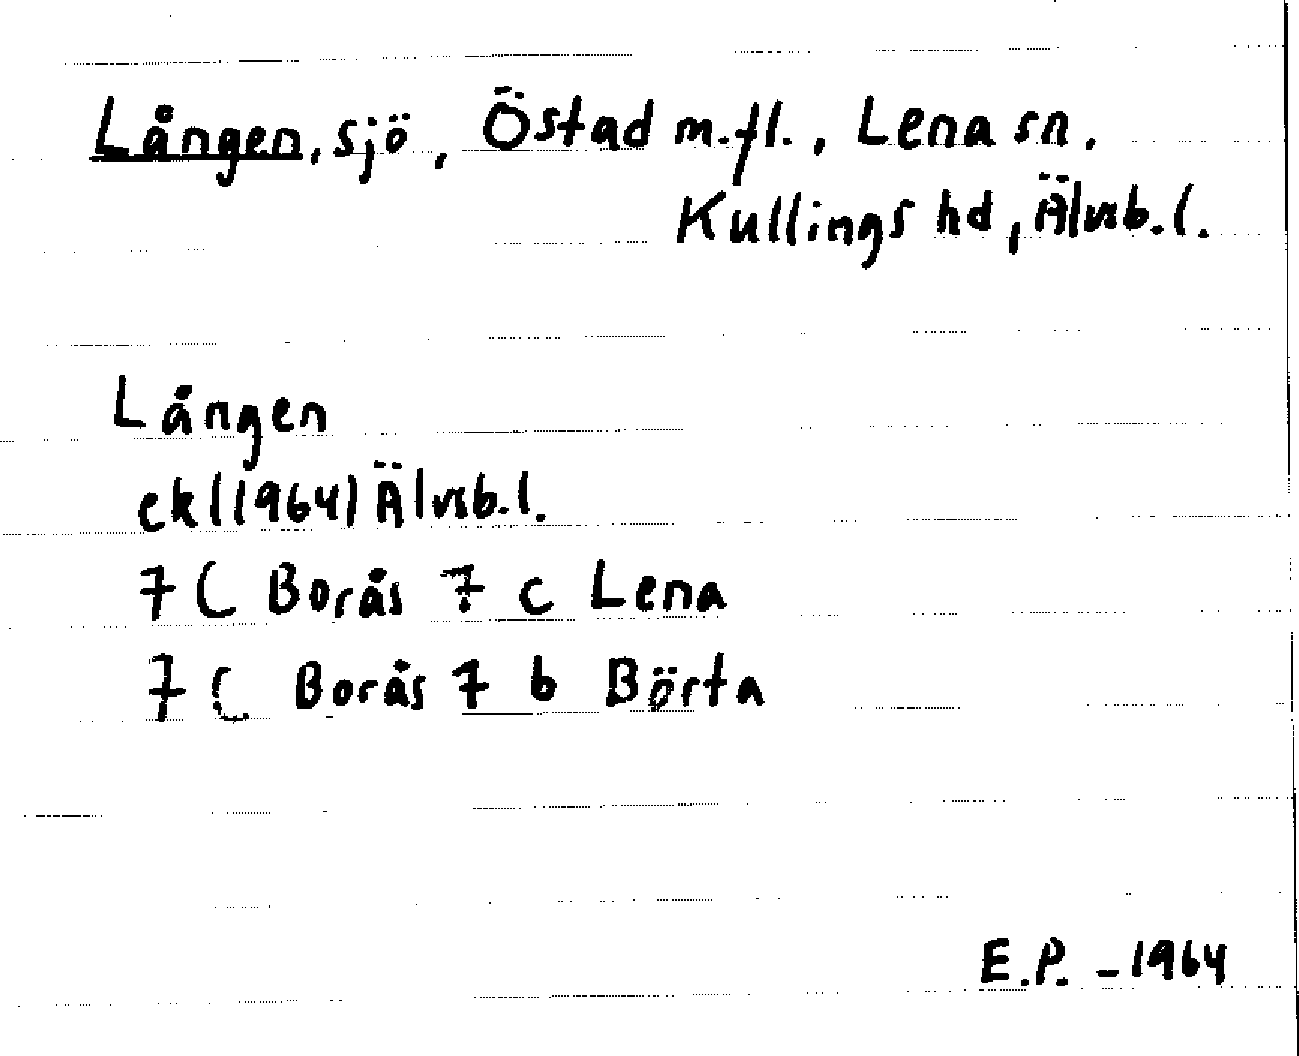 Lången, sjö, Östad m.fl., Lena sn.
Kullings hd, Älvsb.l.
Lången
ek (1964) Älvsb.l.
7 C Borås 7 c Lena
7 C Borås 7 b Börta
E.P. - 1964